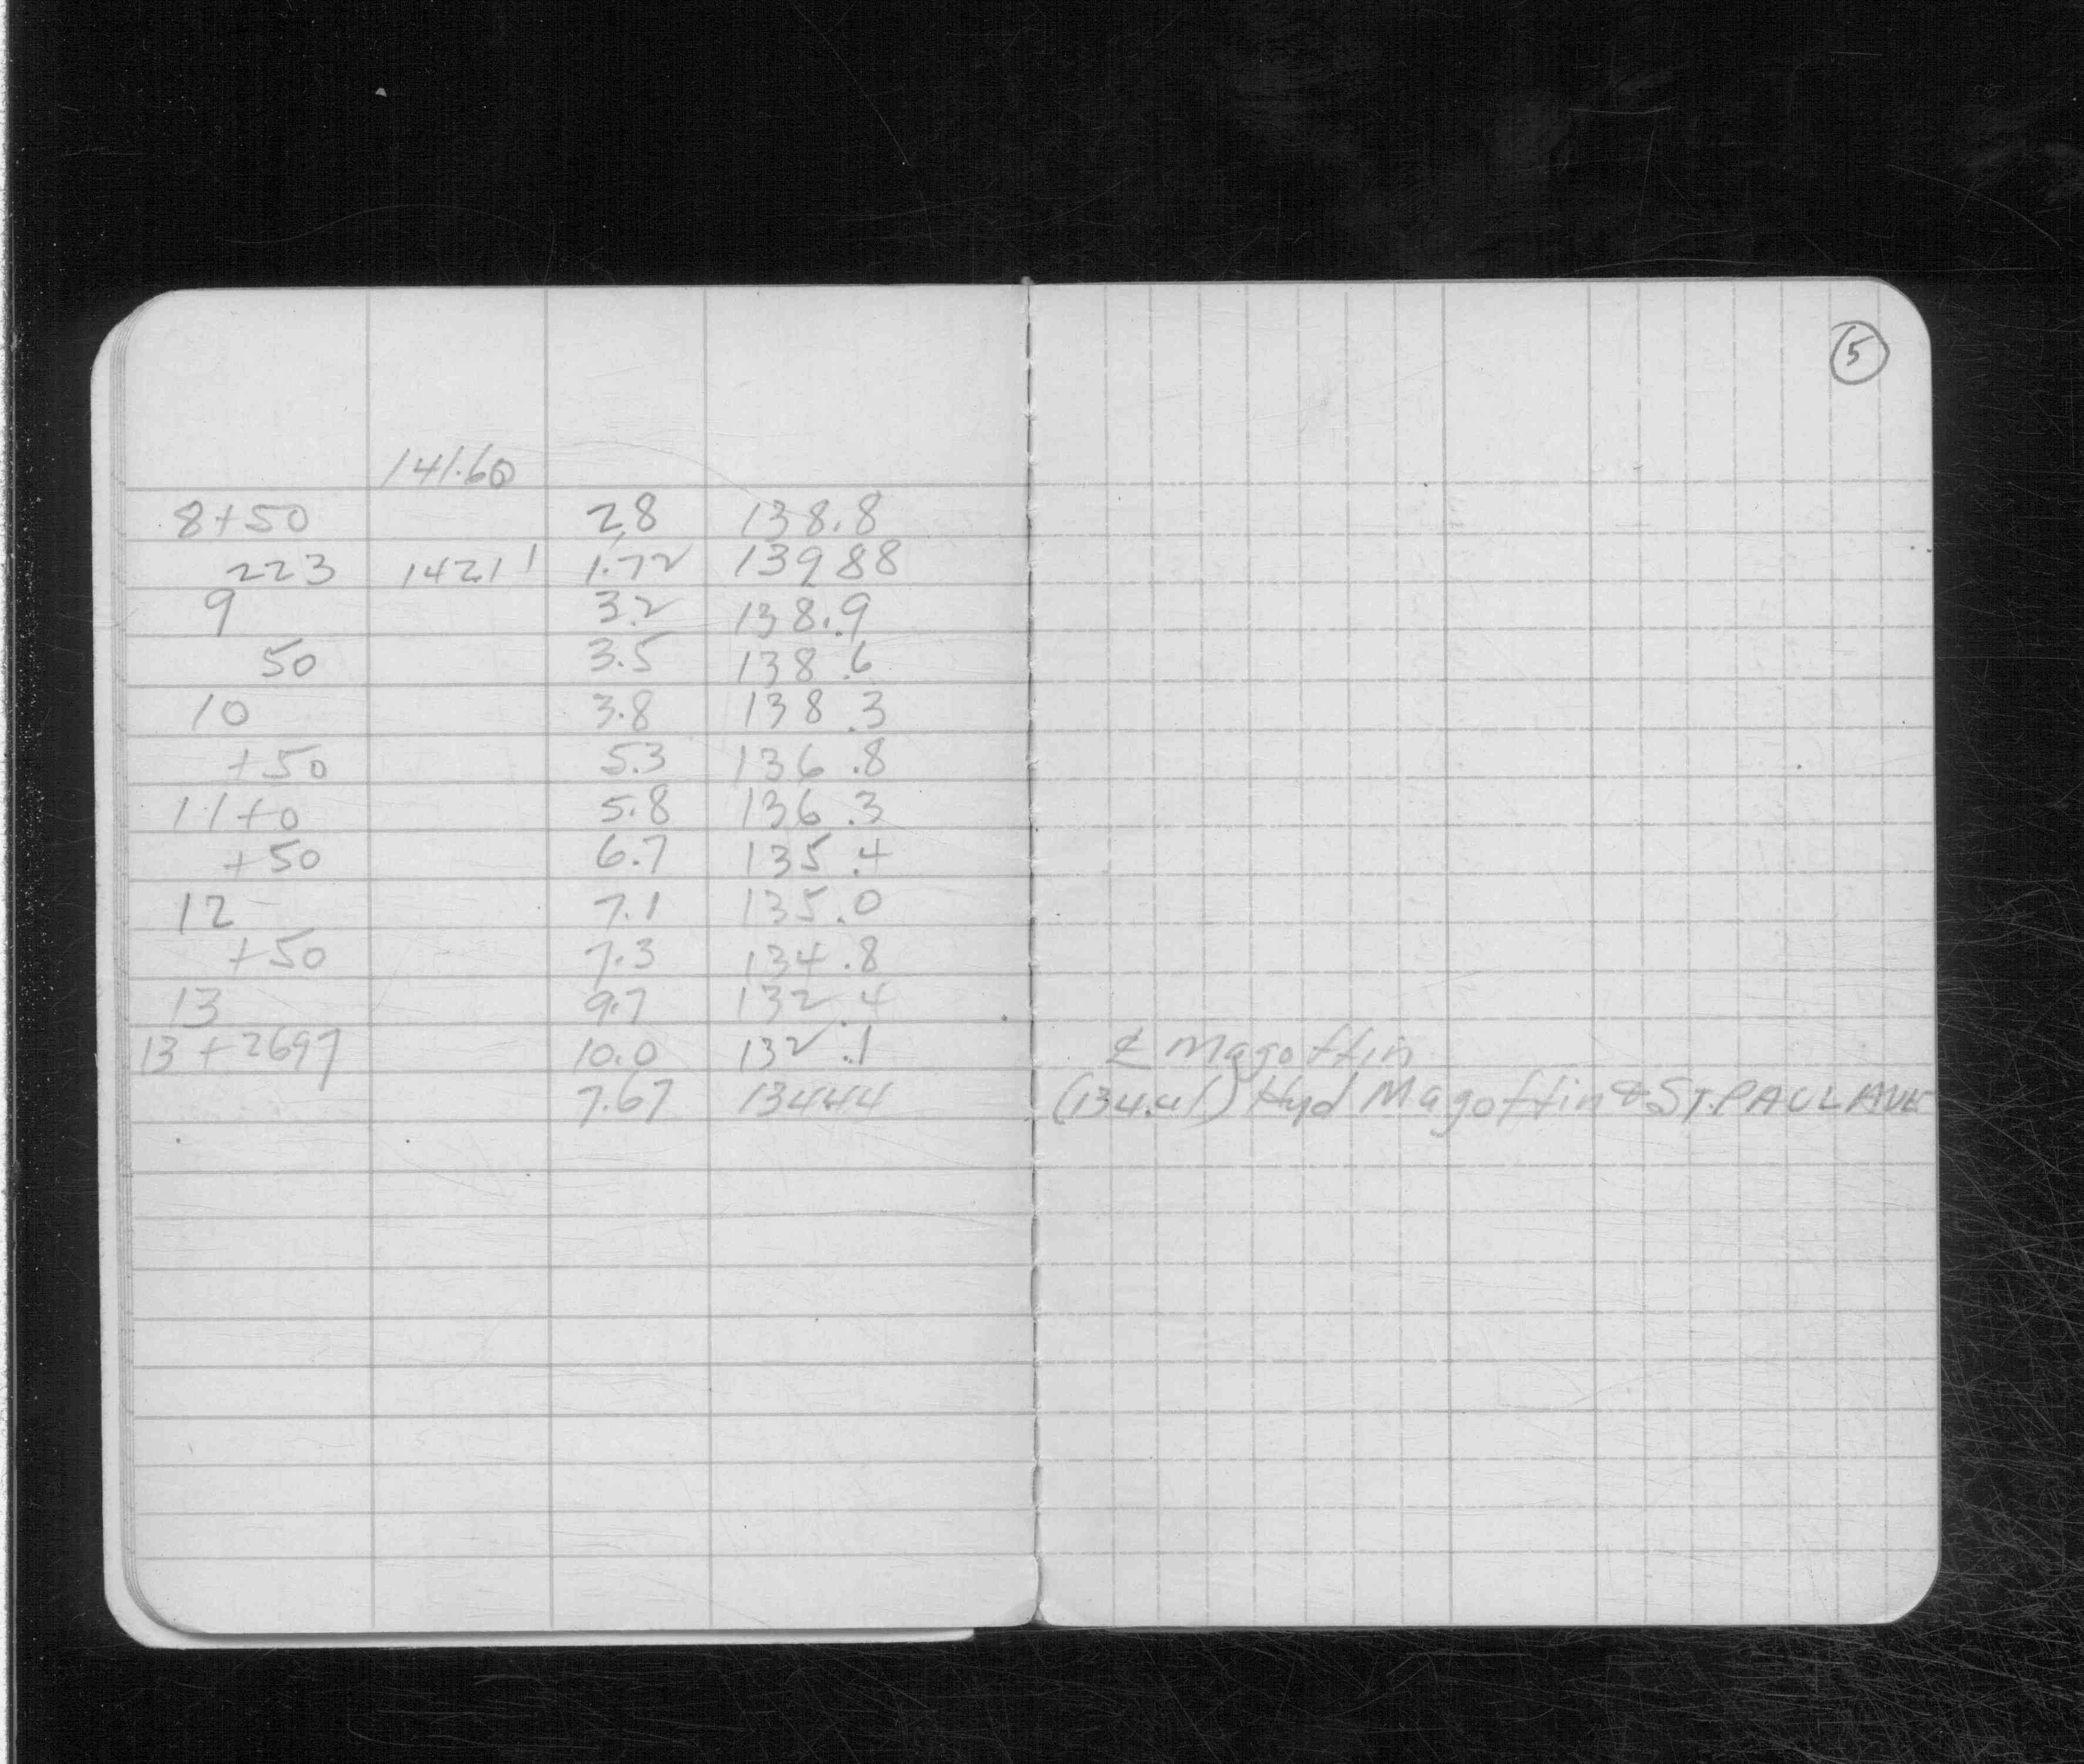 5
141.60
8+50 2.8 138.8
223 142.11 1.72 139 88
9 3.2 138.9
50 3.5 138.6
10 3.8 138.3
+50 5.3 136.8
11+0 5.8 136.3
+50 6.7 135.4
12 7.1 135.0
+50 7.3 134.8
13 9.7 132.4
13+2697 10.0 132.1 ℄ Magoffin
7.67 134.44 (134.41) Hyd Magoffin & ST. PAUL AVE